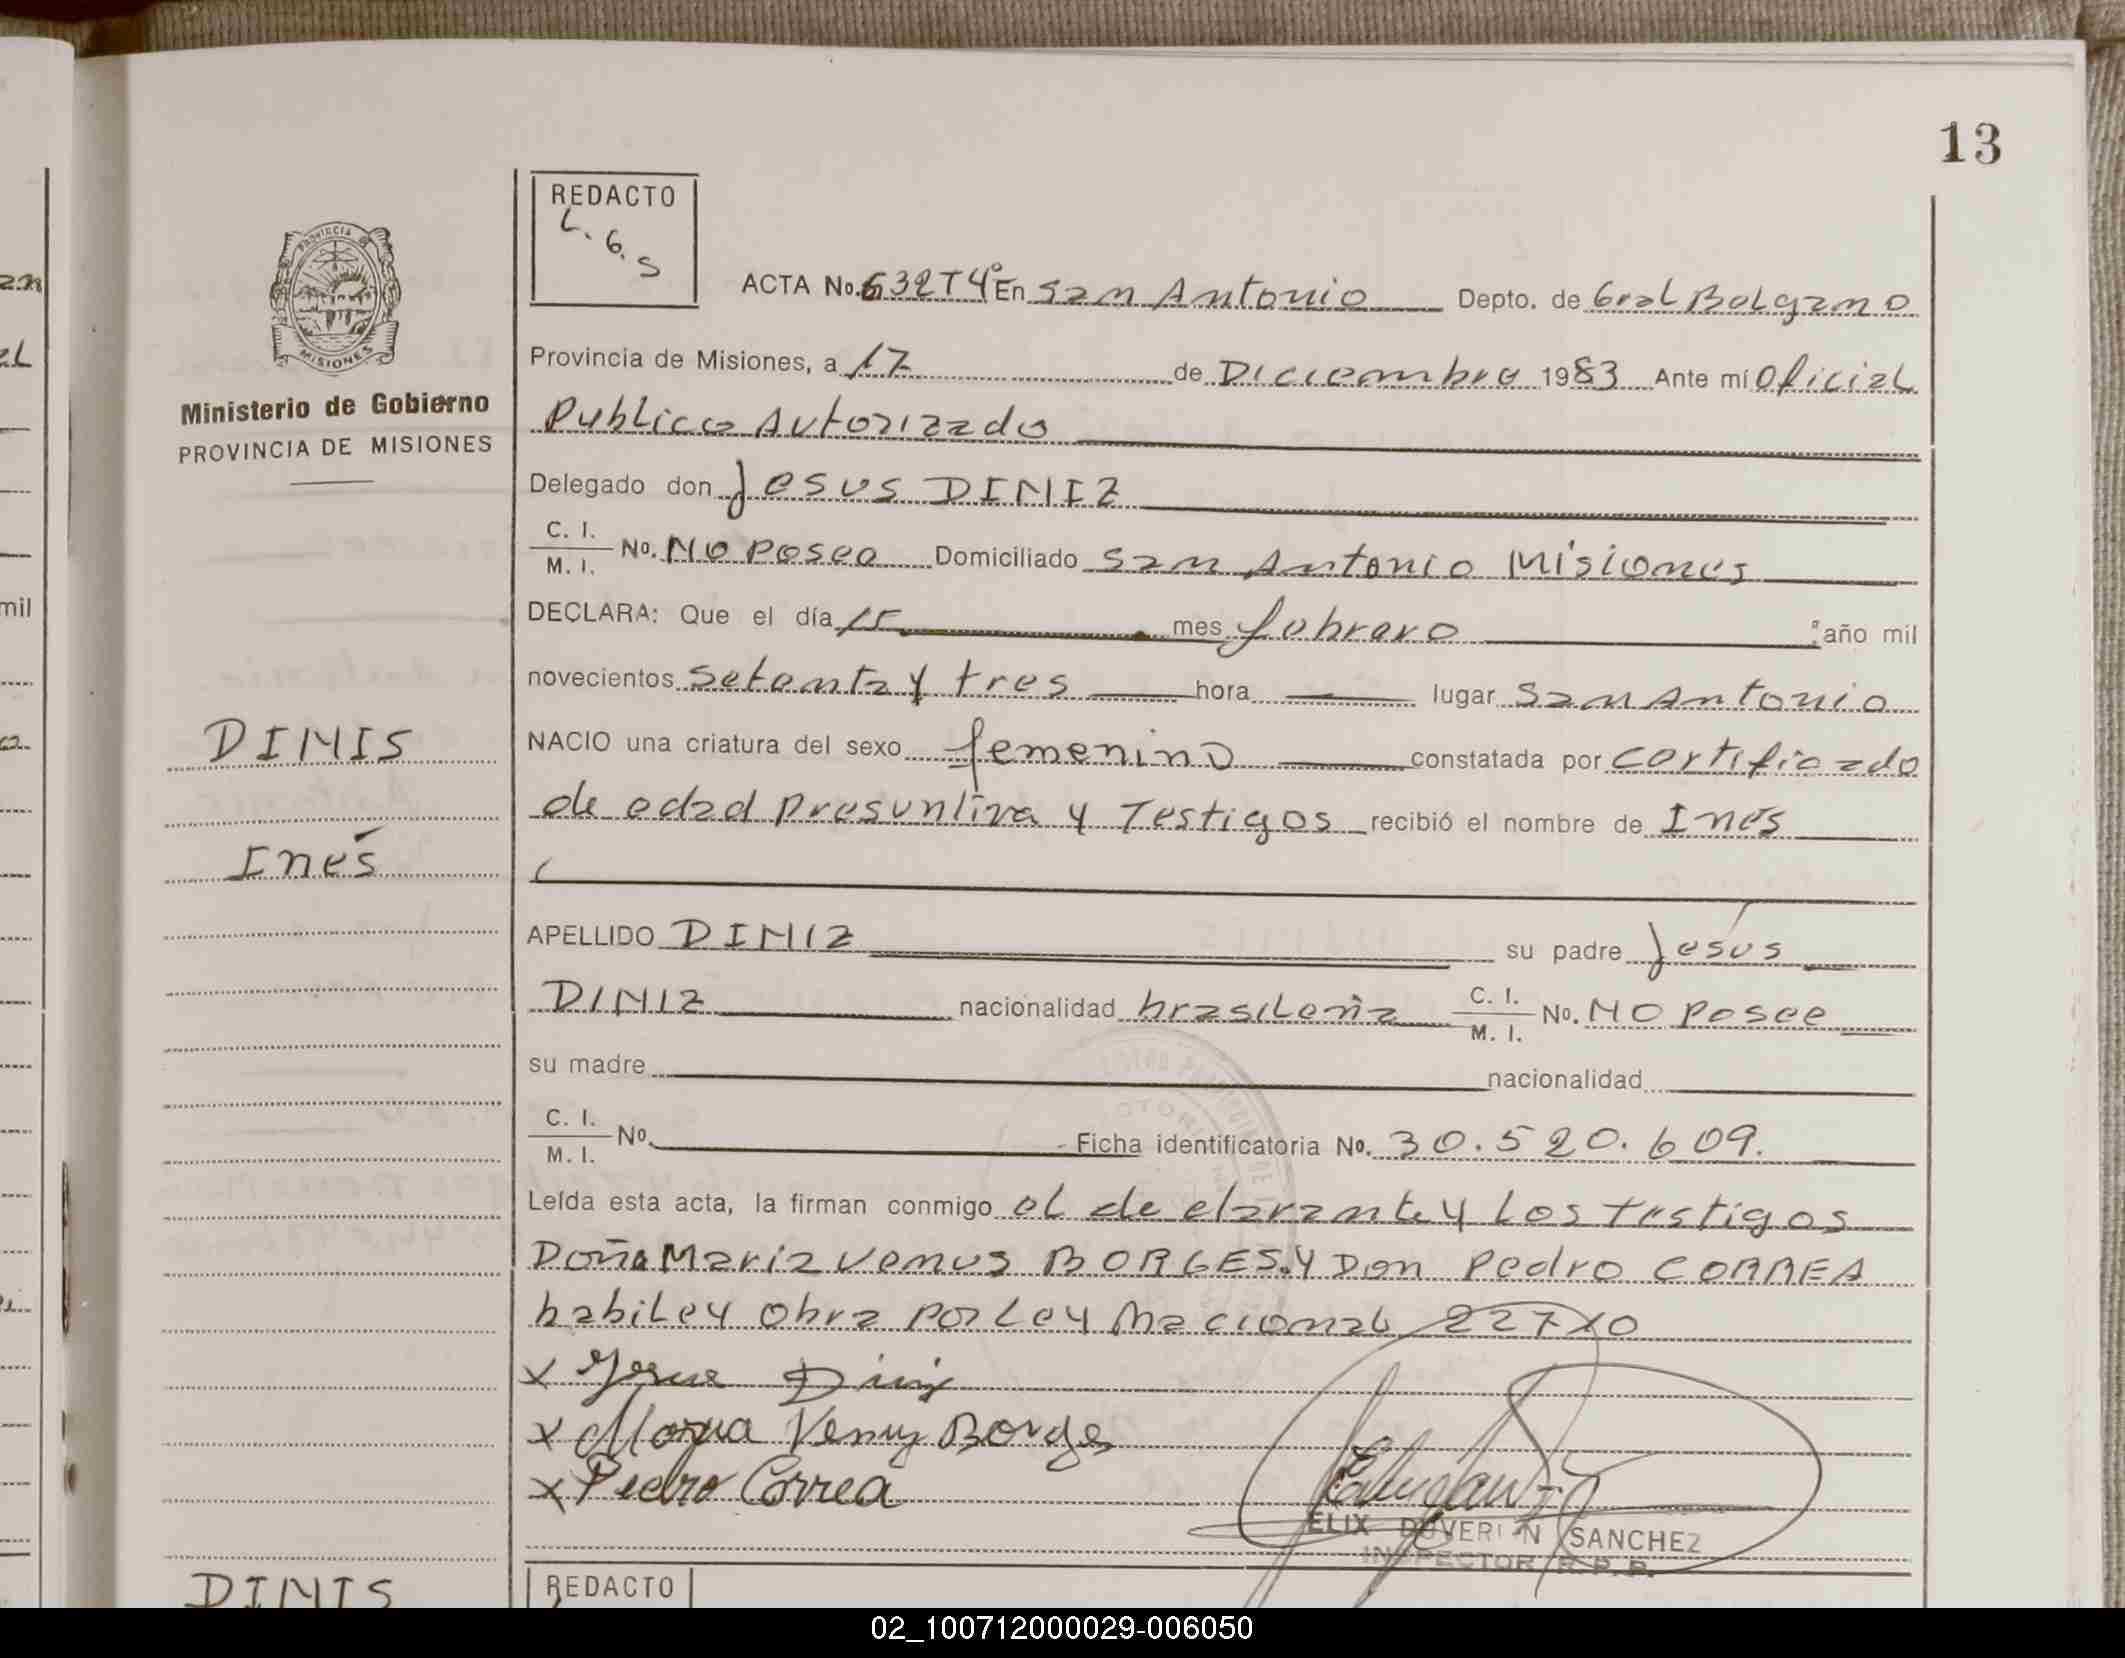 13
REDACTO
L. G. S
ACTA No. 632T4º En San Antonio Depto. de Gral Belgrano
PROVINCIA
MISIONES
Provincia de Misiones, a 17 de Diciembre 1983 Ante mí Oficial
Ministerio de Gobierno
Publico Autorizado
PROVINCIA DE MISIONES
Delegado don Jesus DINIZ
C. I. / M. I. No. No Posee Domiciliado San Antonio Misiones
DECLARA: Que el día 15 mes febrero año mil
novecientos setenta y tres hora lugar San Antonio
DINIS
NACIO una criatura del sexo femenino constatada por certificado
de edad presuntiva y Testigos recibió el nombre de Inés
Inés
APELLIDO DINIZ su padre Jesús
DINIZ nacionalidad brasileña C. I. / M. I. No. No Posee
su madre nacionalidad
C. I. / M. I. No. Ficha identificatoria No. 30.520.609.
Leída esta acta, la firman conmigo el de clarante y Los testigos
Doña Maria Venus BORGES. Y Don Pedro CORREA
habiley Obra Por Ley Nacional 22710
x Jesus Diniz
x Maria Venus Borges
x Pedro Correa
ELIX DUVERI N SANCHEZ
INSPECTOR R. P. P.
DINIS
REDACTO
02_100712000029-006050